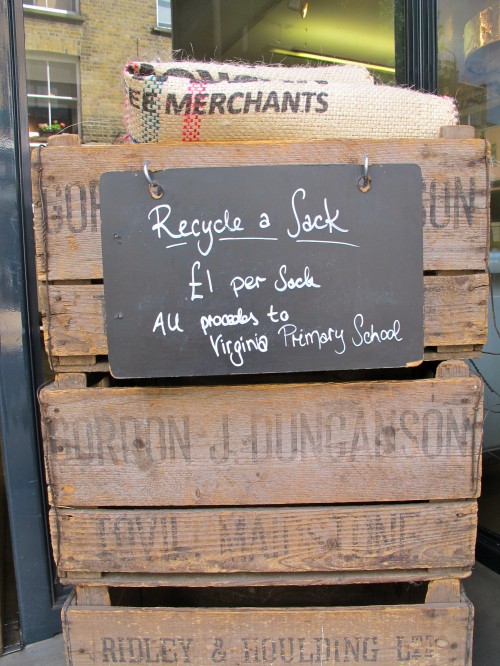 EE MERCHANTS
Recycle a Sack
£1 per Sack
All procedes to
Virginia Primary School
GORDON J. DUNCANSON
TOVIL. MAIDSTONE.
RIDLEY & HOULDING LTD